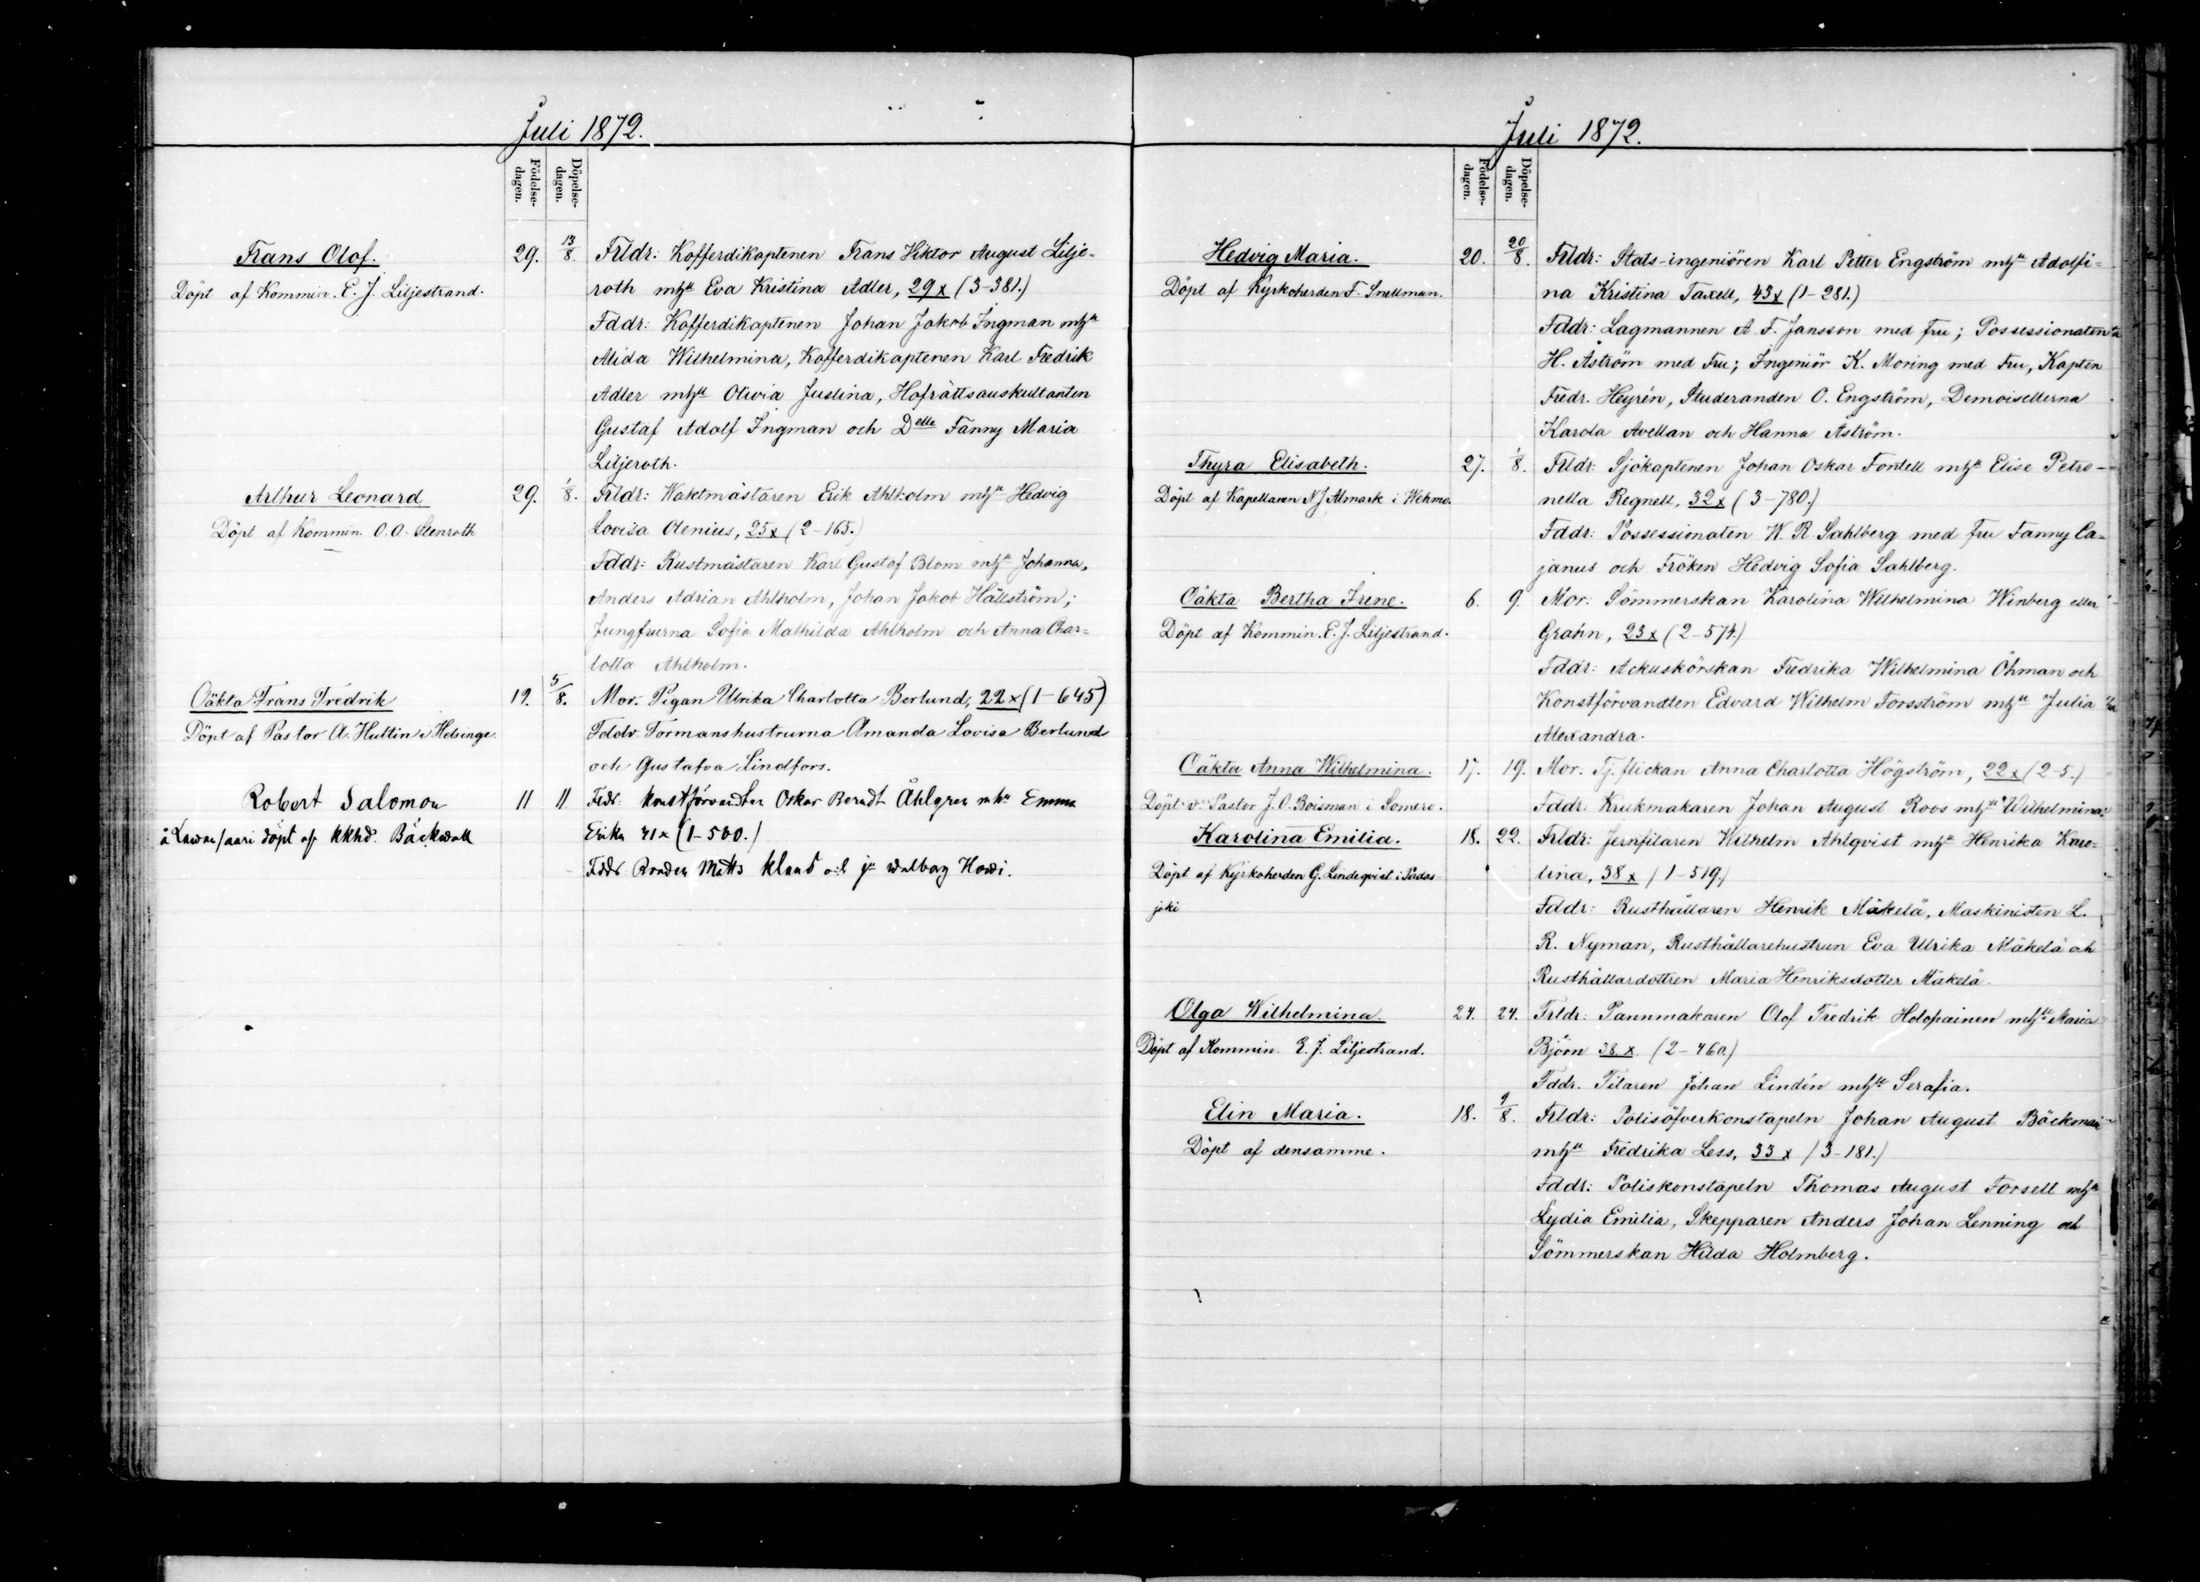 Juli 1872.
Födelse-dagen.
Döpelse-dagen.
Frans Olof. 29. 13/8. Frldr: Kofferdikaptenen Frans Viktor August Lilje-
Döpt af Kommin. E. J. Liljestrand. roth mhu Eva Kristina Adler, 29 x (3-381.)
Fddr: Kofferdikaptenen Johan Jakob Ingman mhu
Alida Wilhelmina, Kofferdikaptenen Karl Fredrik
Adler mhu Olivia Justina, Hofrättsauskultanten
Gustaf Adolf Ingman och Delle Fanny Maria
Liljeroth.
Arthur Leonard 29. 1/8. Frldr: Waktmästaren Erik Ahlholm mhu Hedvig
Döpt af Kommin. O. A. Stenroth Lovisa Olenius, 25 x (2-165.)
Fddr: Rustmästaren Karl Gustaf Blom mhu Johanna,
Anders Adrian Ahlholm, Johan Jakob Hällström;
Jungfrurna Sofia Mathilda Ahlholm och Anna Char-
lotta Ahlholm.
Oäkta Frans Fredrik 19. 5/8. Mor. Pigan Ulrika Charlotta Berlund, 22 x (1-645)
Döpt af Pastor A. Huttin i Helsinge. Fddr. Formanshustrurna Amanda Lovisa Berlund
och Gustafva Lindfors.
Robert Salomon 11 11 Frdr: konstförvandten Oskar Berndt Åhlgren mhu Emma
döpt af kkhd. Bäckwall Erika 41 x (1-500.)
Fddr Bonden Matts och
Juli 1872.
Födelse-dagen.
Döpelse-dagen.
Hedvig Maria. 20. 20/8. Frldr: Stats-ingeniören Karl Petter Engström mhu Adolfi-
Döpt af Kyrkoherden F. Snellman. na Kristina Taxell, 43 x (1-281.)
Fddr: Lagmannen A. F. Jansson med fru; Possessionaten
H. Åström med Fru; Ingeniör K. Moring med Fru, Kapten
Fredr. Heyrén, Studeranden O. Engström, Demoisellerna
Karola Avellan och Hanna Åström.
Thyra Elisabeth. 27. 1/8. Frldr: Sjökaptenen Johan Oskar Fontell mhu Elise Petro-
Döpt af Kapellaren N J Almark i Wehmo. nella Regnell, 32 x (3-780.)
Fddr: Possessionaten W. R Sahlberg med fru Fanny Ca-
janus och Fröken Hedvig Sofia Sahlberg.
Oäkta Bertha Irene. 6. 9. Mor: Sömmerskan Karolina Wilhelmina Winberg eller
Döpt af Kommin. E. J. Liljestrand. Grahn, 23 x (2-574.)
Fddr: Ackuskörskan Fredrika Wilhelmina Öhman och
Konstförvandten Edvard Wilhelm Forsström mhu Julia
Alexandra.
Oäkta Anna Wilhelmina. 17. 19. Mor. Tj.flickan Anna Charlotta Högström, 22 x (2-5.)
Döpt v. Pastor J. O. Boisman i Somero. Fddr: Krukmakaren Johan August Roos mhu Wilhelmina.
Karolina Emilia. 18. 22. Frldr: Jernfilaren Wilhelm Ahlqvist mhu Henrika Karo-
Döpt af Kyrkoherden G. Lindeqvist i Padas lina, 38 x (1-519.)
joki Fddr: Rusthållaren Henrik Mäkelä, Maskinisten L.
R. Nyman, Rusthållarehustrun Eva Ulrika Mäkelä och
Rusthållardottren Maria Henriksdotter Mäkelä.
Olga Wilhelmina. 24. 24. Frldr: Pannmakaren Olof Fredrik Holopainen mhu Maria
Döpt af Kommin. E. J. Liljestrand. Björn 38. x. (2-460.)
Fddr. Filaren Johan Lindén mhu Serafia.
Elin Maria. 18. 9/8. Frldr: Polisöfverkonstapeln Johan August Bäckman
Döpt af densamme. mhu Fredrika Less, 33 x (3-181.)
Fddr: Poliskonstapeln Thomas August Forsell mhu
Lydia Emilia, Skepparen Anders Johan Lenning och
Sömmerskan Hilda Holmberg.